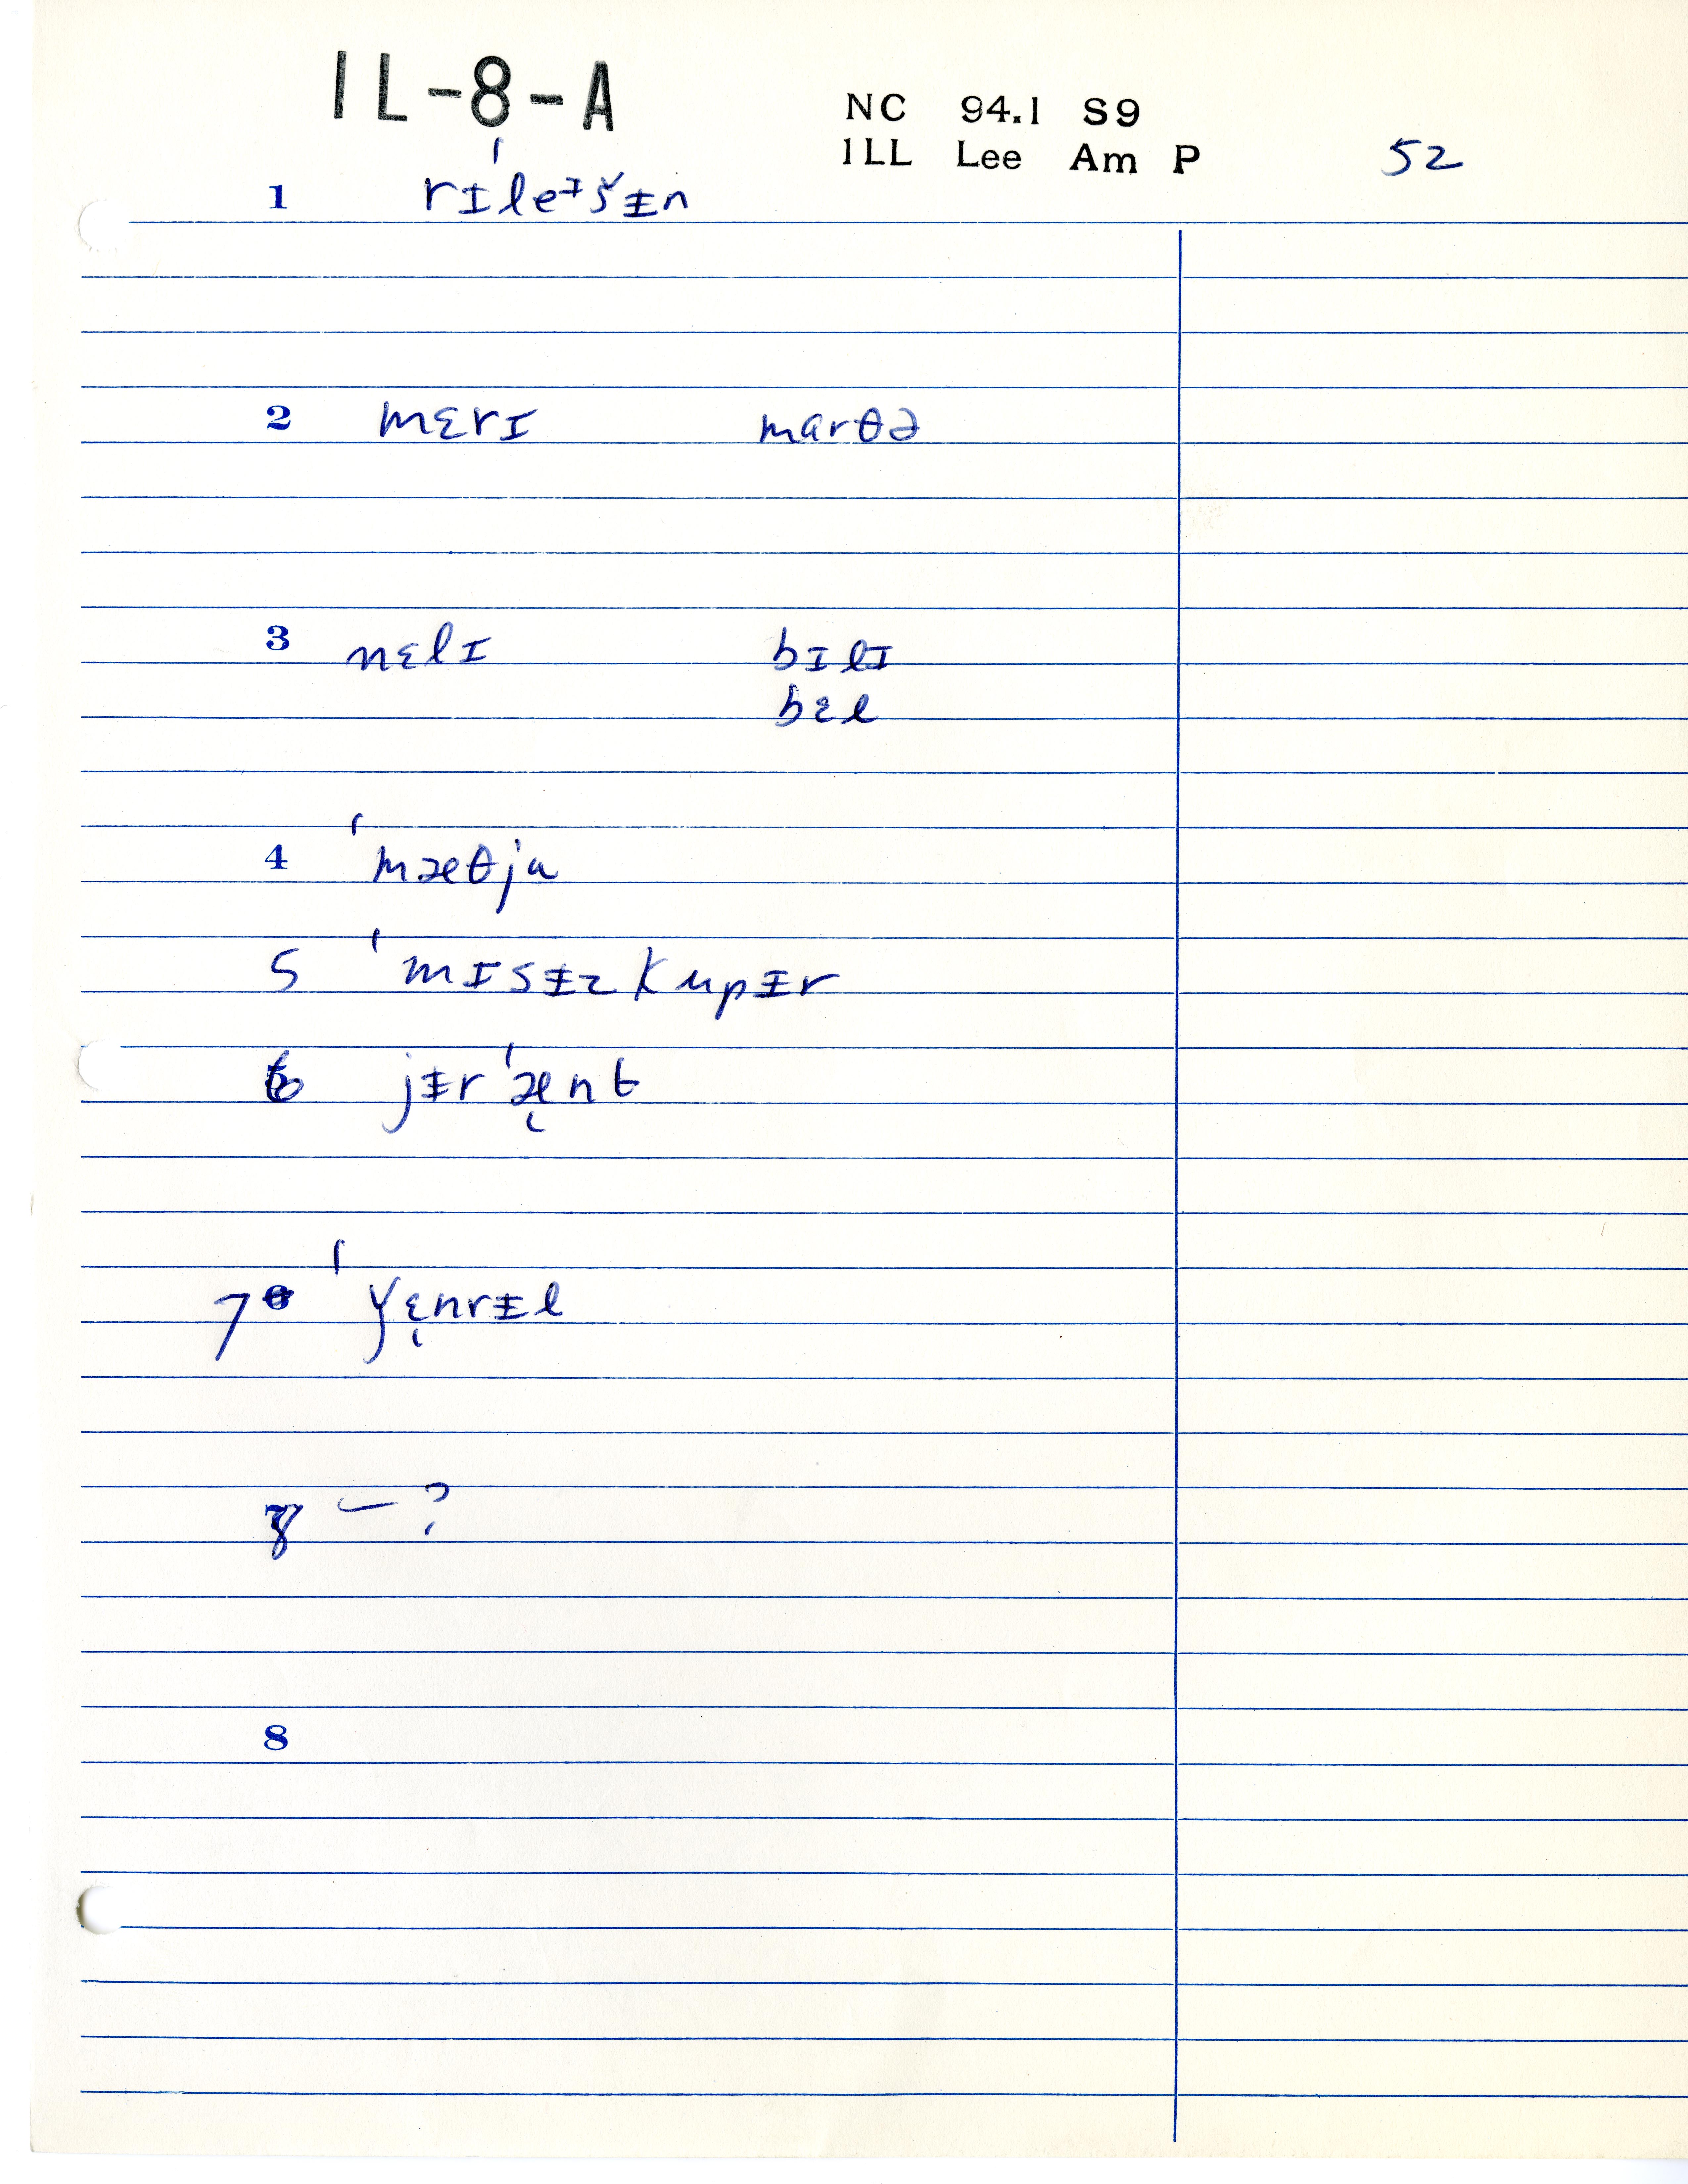 IL-8-A
NC 94.1 S9
1LL Lee Am P 52
1 rɪˈleᶦšᵻn
2 mɛrɪ marθə
3 nɛlɪ bɪlɪ
bɛl
4 ˈmæθju
5 ˈmɪsᵻz kupᵻr
6 jᵻrˈæ̨nt
7 ˈɣɛ̨nrᵻl
8 — ?
8